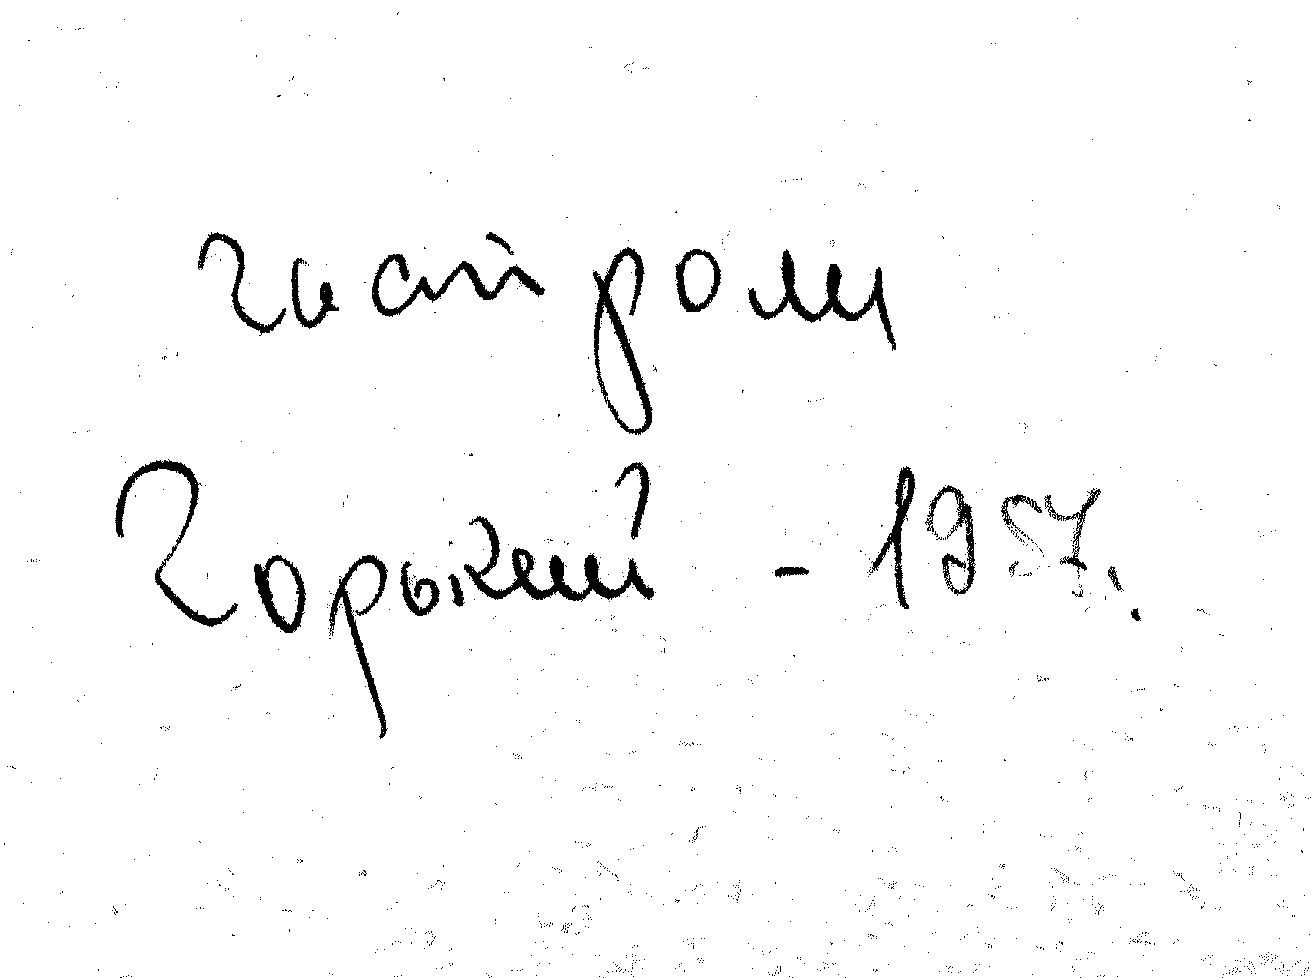 гастроли
Горький - 1957.